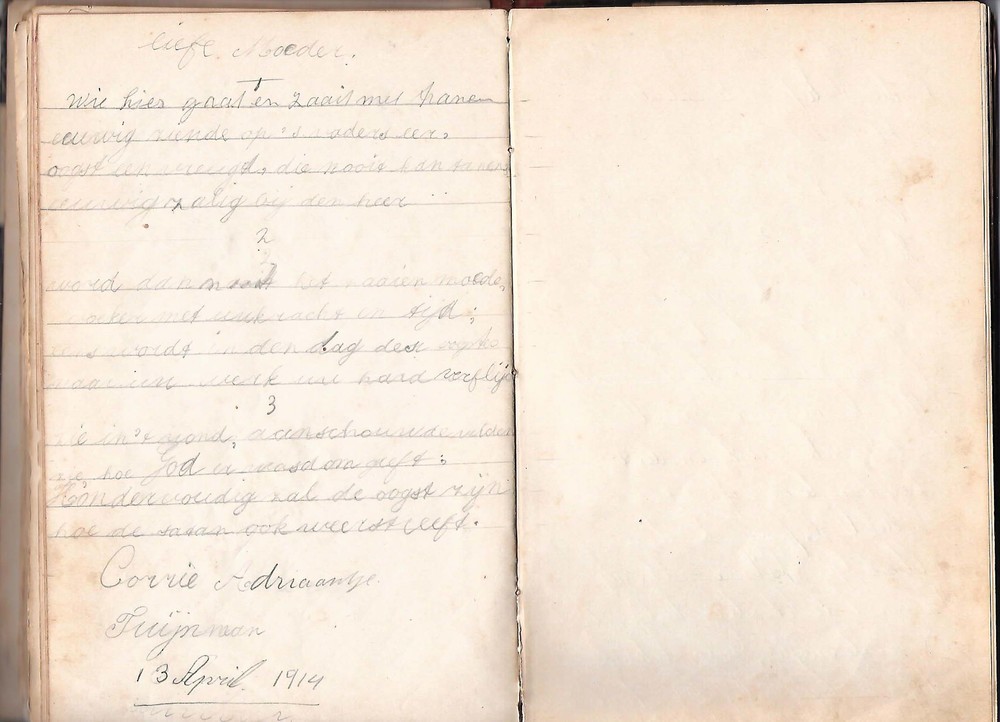 liefe Moeder.
Wie hier gaat en zaait met tranen
eeuwig ziende op 's vaders eer,
oogst een vreugd, die nooit kan tanen
eeuwig zalig bij den heer
2
word dan nooit het zaaien moede,
met kracht en tijd;
eens wordt in den dag des oogsts
werk uw hard verflijd
3
zie in't rond, aanschouw de velden
zie hoe God u wasdom geeft;
Hondervoudig zal de oogst zijn
hoe de satan ook weerstreeft.
Corrie Adriaantje
Tuijnman
13 April 1914